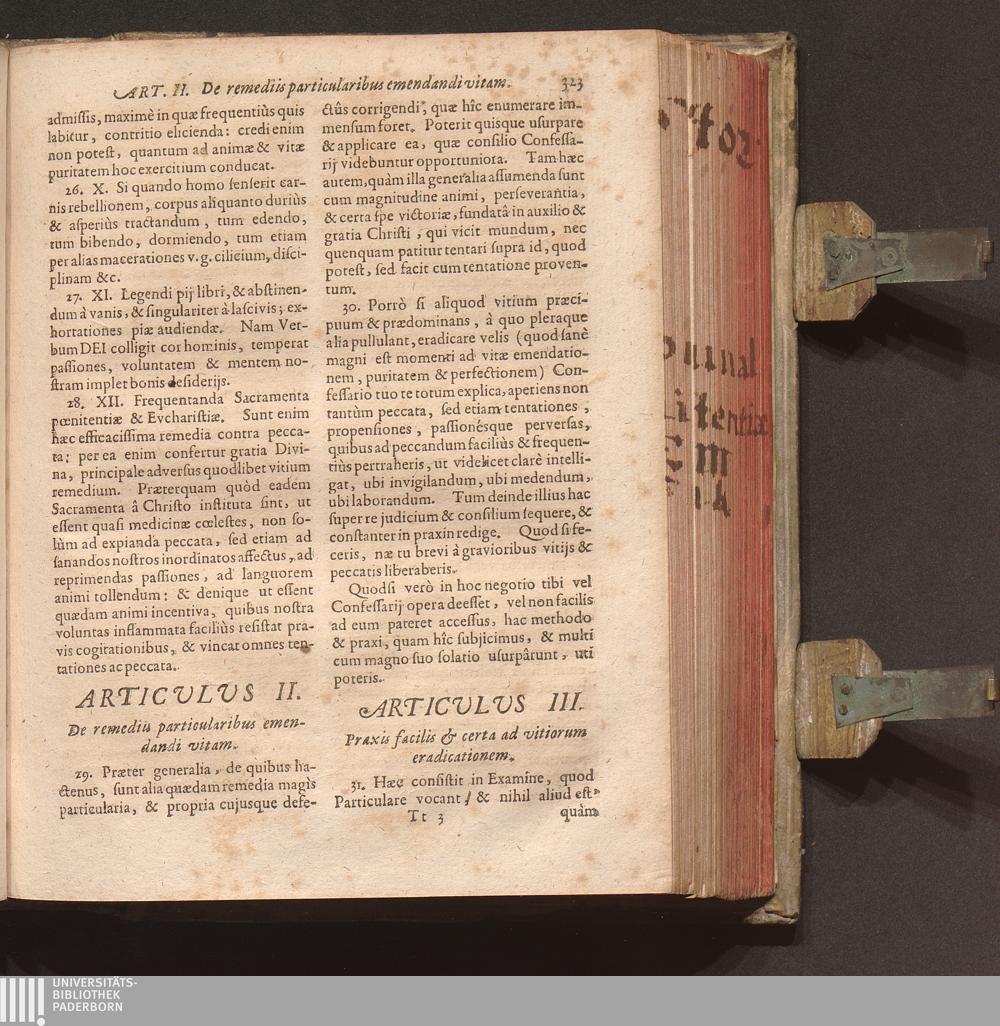 ART. II. De remediis particularibus emendandi vitam. 323
admissis, maximè in quæ frequentiùs quis
labitur, contritio elicienda: credi enim
non potest, quantum ad animæ & vitæ
puritatem hoc exercitium conducat.
26. X. Si quando homo senserit car-
nis rebellionem, corpus aliquanto duriùs
& asperiùs tractandum, tum edendo,
tum bibendo, dormiendo, tum etiam
per alias macerationes v. g. cilicium, disci-
plinam &c.
27. XI. Legendi pij libri, & abstinen-
dum à vanis, & singulariter à lascivis; ex-
hortationes piæ audiendæ. Nam Ver-
bum DEI colligit cor hominis, temperat
passiones, voluntatem & mentem no-
stram implet bonis desiderijs.
28. XII. Frequentanda Sacramenta
pœnitentiæ & Evcharistiæ. Sunt enim
hæc efficacissima remedia contra pecca-
ta: per ea enim confertur gratia Divi-
na, principale adversus quodlibet vitium
remedium. Præterquam quòd eadem
Sacramenta â Christo instituta sint, ut
essent quasi medicinæ cœlestes, non so-
lùm ad expianda peccata, sed etiam ad
sanandos nostros inordinatos affectus, ad
reprimendas passiones, ad languorem
animi tollendum: & denique ut essent
quædam animi incentiva, quibus nostra
voluntas inflammata faciliùs resistat pra-
vis cogitationibus, & vincat omnes ten-
tationes ac peccata.
ARTICVLVS II.
De remediis particularibus emen-
dandi vitam.
29. Præter generalia, de quibus ha-
ctenus, sunt alia quædam remedia magìs
particularia, & propria cujusque defe-
ctûs corrigendi, quæ hîc enumerare im-
mensum foret. Poterit quisque usurpare
& applicare ea, quæ consilio Confessa-
rij videbuntur opportuniora. Tam hæc
autem, quàm illa generalia assumenda sunt
cum magnitudine animi, perseverantia,
& certa spe victoriæ, fundatâ in auxilio &
gratia Christi, qui vicit mundum, nec
quenquam patitur tentari supra id, quod
potest, sed facit cum tentatione proven-
tum.
30. Porrò si aliquod vitium præci-
puum & prædominans, à quo pleraque
alia pullulant, eradicare velis (quod sanè
magni est momenti ad vitæ emendatio-
nem, puritatem & perfectionem) Con-
fessario tuo te totum explica, aperiens non
tantùm peccata, sed etiam tentationes,
propensiones, passionésque perversas,
quibus ad peccandum faciliùs & frequen-
tiùs pertraheris, ut videlicet clarè intelli-
gat, ubi invigilandum, ubi medendum,
ubi laborandum. Tum deinde illius hac
super re judicium & consilium sequere, &
constanter in praxin redige. Quod si fe-
ceris, næ tu brevi à gravioribus vitijs &
peccatis liberaberis.
Quodsi verò in hoc negotio tibi vel
Confessarij opera deesset, vel non facilis
ad eum pateret accessus, hac methodo
& praxi, quam hîc subjicimus, & multi
cum magno suo solatio usurpârunt, uti
poteris.
ARTICVLVS III.
Praxis facilis & certa ad vitiorum
eradicationem.
31. Hæc consistit in Examine, quod
Particulare vocant, & nihil aliud est,
Tt 3 quàm
UNIVERSITÄTS-
BIBLIOTHEK
PADERBORN